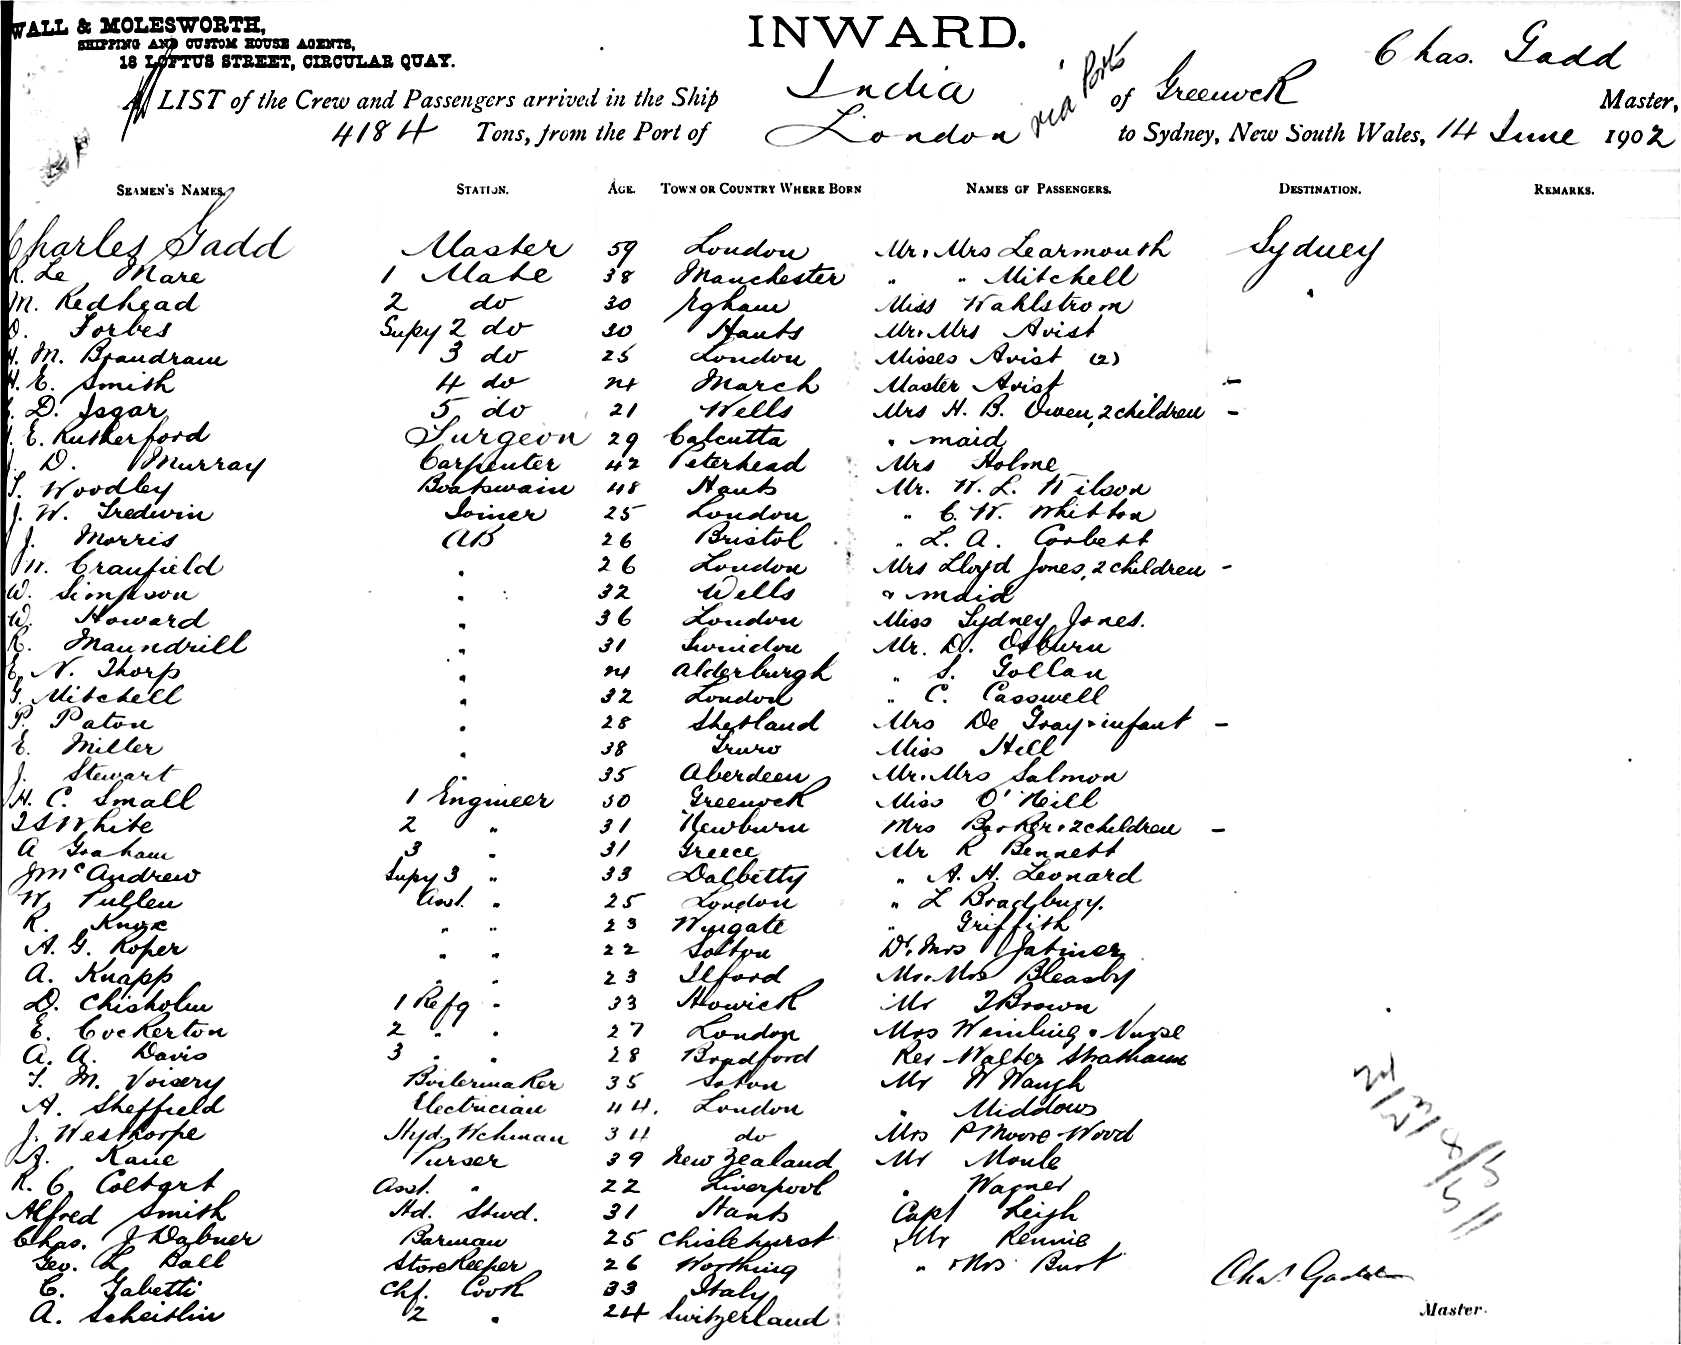 WALL & MOLESWORTH,
SHIPPING AND CUSTOM HOUSE AGENTS,
18 LOFTUS STREET, CIRCULAR QUAY.
INWARD.
Chas. Gadd
A LIST of the Crew and Passengers arrived in the Ship India of Greenock Master,
4184 Tons, from the Port of London via Ports to Sydney, New South Wales, 14 June 1902
SEAMEN'S NAMES. STATION. AGE. TOWN OR COUNTRY WHERE BORN NAMES OF PASSENGERS. DESTINATION. REMARKS.
Charles Gadd Master 59 London Mr. Mrs Learmouth Sydney
R. Le Mare 1 Mate 38 Manchester " " Mitchell
M. Redhead 2 do 30 Egham Miss Wahlstrom
Forbes Supy 2 do 30 Hants Mr. Mrs Avist
H. M. Brandram 3 do 25 London Misses Avist (2)
H. E. Smith 4 do 24 March Master Avist -
D. Isgar 5 do 21 Wells Mrs H. B. Owen, 2 children -
E. Rutherford Surgeon 29 Calcutta " maid
J. D. Murray Carpenter 42 Peterhead Mrs Holme
T. Woodley Boatswain 48 Hants Mr. W. L. Wilson
J. W. Tredwin Joiner 25 London " C. W. Whitton
J. Morris AB 26 Bristol " L. A. Corbett
W. Cranfield " 26 London Mrs Lloyd Jones, 2 children -
W. Simpson " 32 Wells " maid
W. Howard " 36 London Miss Sydney Jones.
R. Maundrill " 31 Swindon Mr. D. Osburn
E. N. Thorp " 24 Alderburgh " S. Gollan
G. Mitchell " 32 London " C. Casswell
P. Paton " 28 Shetland Mrs De Gray & infant -
E. Miller " 38 Truro Miss Hill
J. Stewart 35 Aberdeen Mr. Mrs Salmon
H. C. Small 1 Engineer 50 Greenock Miss O'Neill
White 2 " 31 Newburn Mrs Barker & 2 children -
A Graham 3 " 31 Greece Mr R Bennett
J McAndrew Supy 3 " 33 Dalbetty " A. H. Leonard
W. Pullen Asst. " 25 London " L Bradbury.
R. Knox " " 23 Wingate " Griffith
A. G. Roper " " 22 Solton Dr. Mrs Jabiner
A. Knapp " " 23 Ilford Mr. Mrs Bleasby
D. Chisholm 1 Refg " 33 Howick Mr J Brown
E. Cockerton 2 " " 27 London Mrs Weinling & Nurse
A. A. Davis 3 " " 28 Bradford Rev Walter Stratham
T. M. Voisery Boilermaker 35 Soton Mr W Waugh
A. Sheffield Electrician 44. London " Middows
J. Westhorpe Hyd. Wchman 34 do Mrs P Moore-Wood
A. Kane Purser 39 New Zealand Mr Moule
R. C. Coltart Asst. " 22 Liverpool " Wagner
Alfred Smith Hd. Stwd. 31 Hants Capt Leigh
Chas. J Dabner Barman 25 Chislehurst Mr Rennie
Geo. H. Ball Storekeeper 26 Worthing " & Mrs Burt
C. Gabetti Chf. Cook 33 Italy Chas Gadd
A. Scheitlin 2 " 24 Switzerland Master.